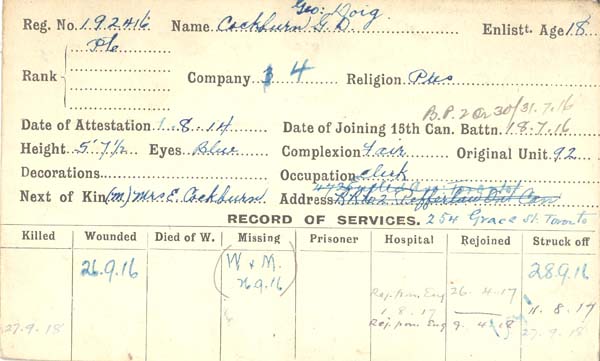 Geo: Doig
Reg. No. 192416 Name Cockburn G.D. Enlistt. Age 18
Pte
Rank Company 3 4 Religion Pres
B.P. 2 Or 30/31.7.16
Date of Attestation 1.8.14 Date of Joining 15th Can. Battn. 18.7.16
Height 5'7½ Eyes Blue Complexion Fair Original Unit 92
Decorations Occupation Clerk
Next of Kin (m) Mrs E. Cockburn Address RR No 2 Pefferlaw Ont Can
RECORD OF SERVICES. 254 Grace St. Toronto
Killed Wounded Died of W. Missing Prisoner Hospital Rejoined Struck off
26.9.16 W & M. 26.9.16 28.9.16
Rej. from Eng 26.4.17
1.8.17 11.8.17
27.9.18 Rej. from Eng 9.4.18 27.9.18